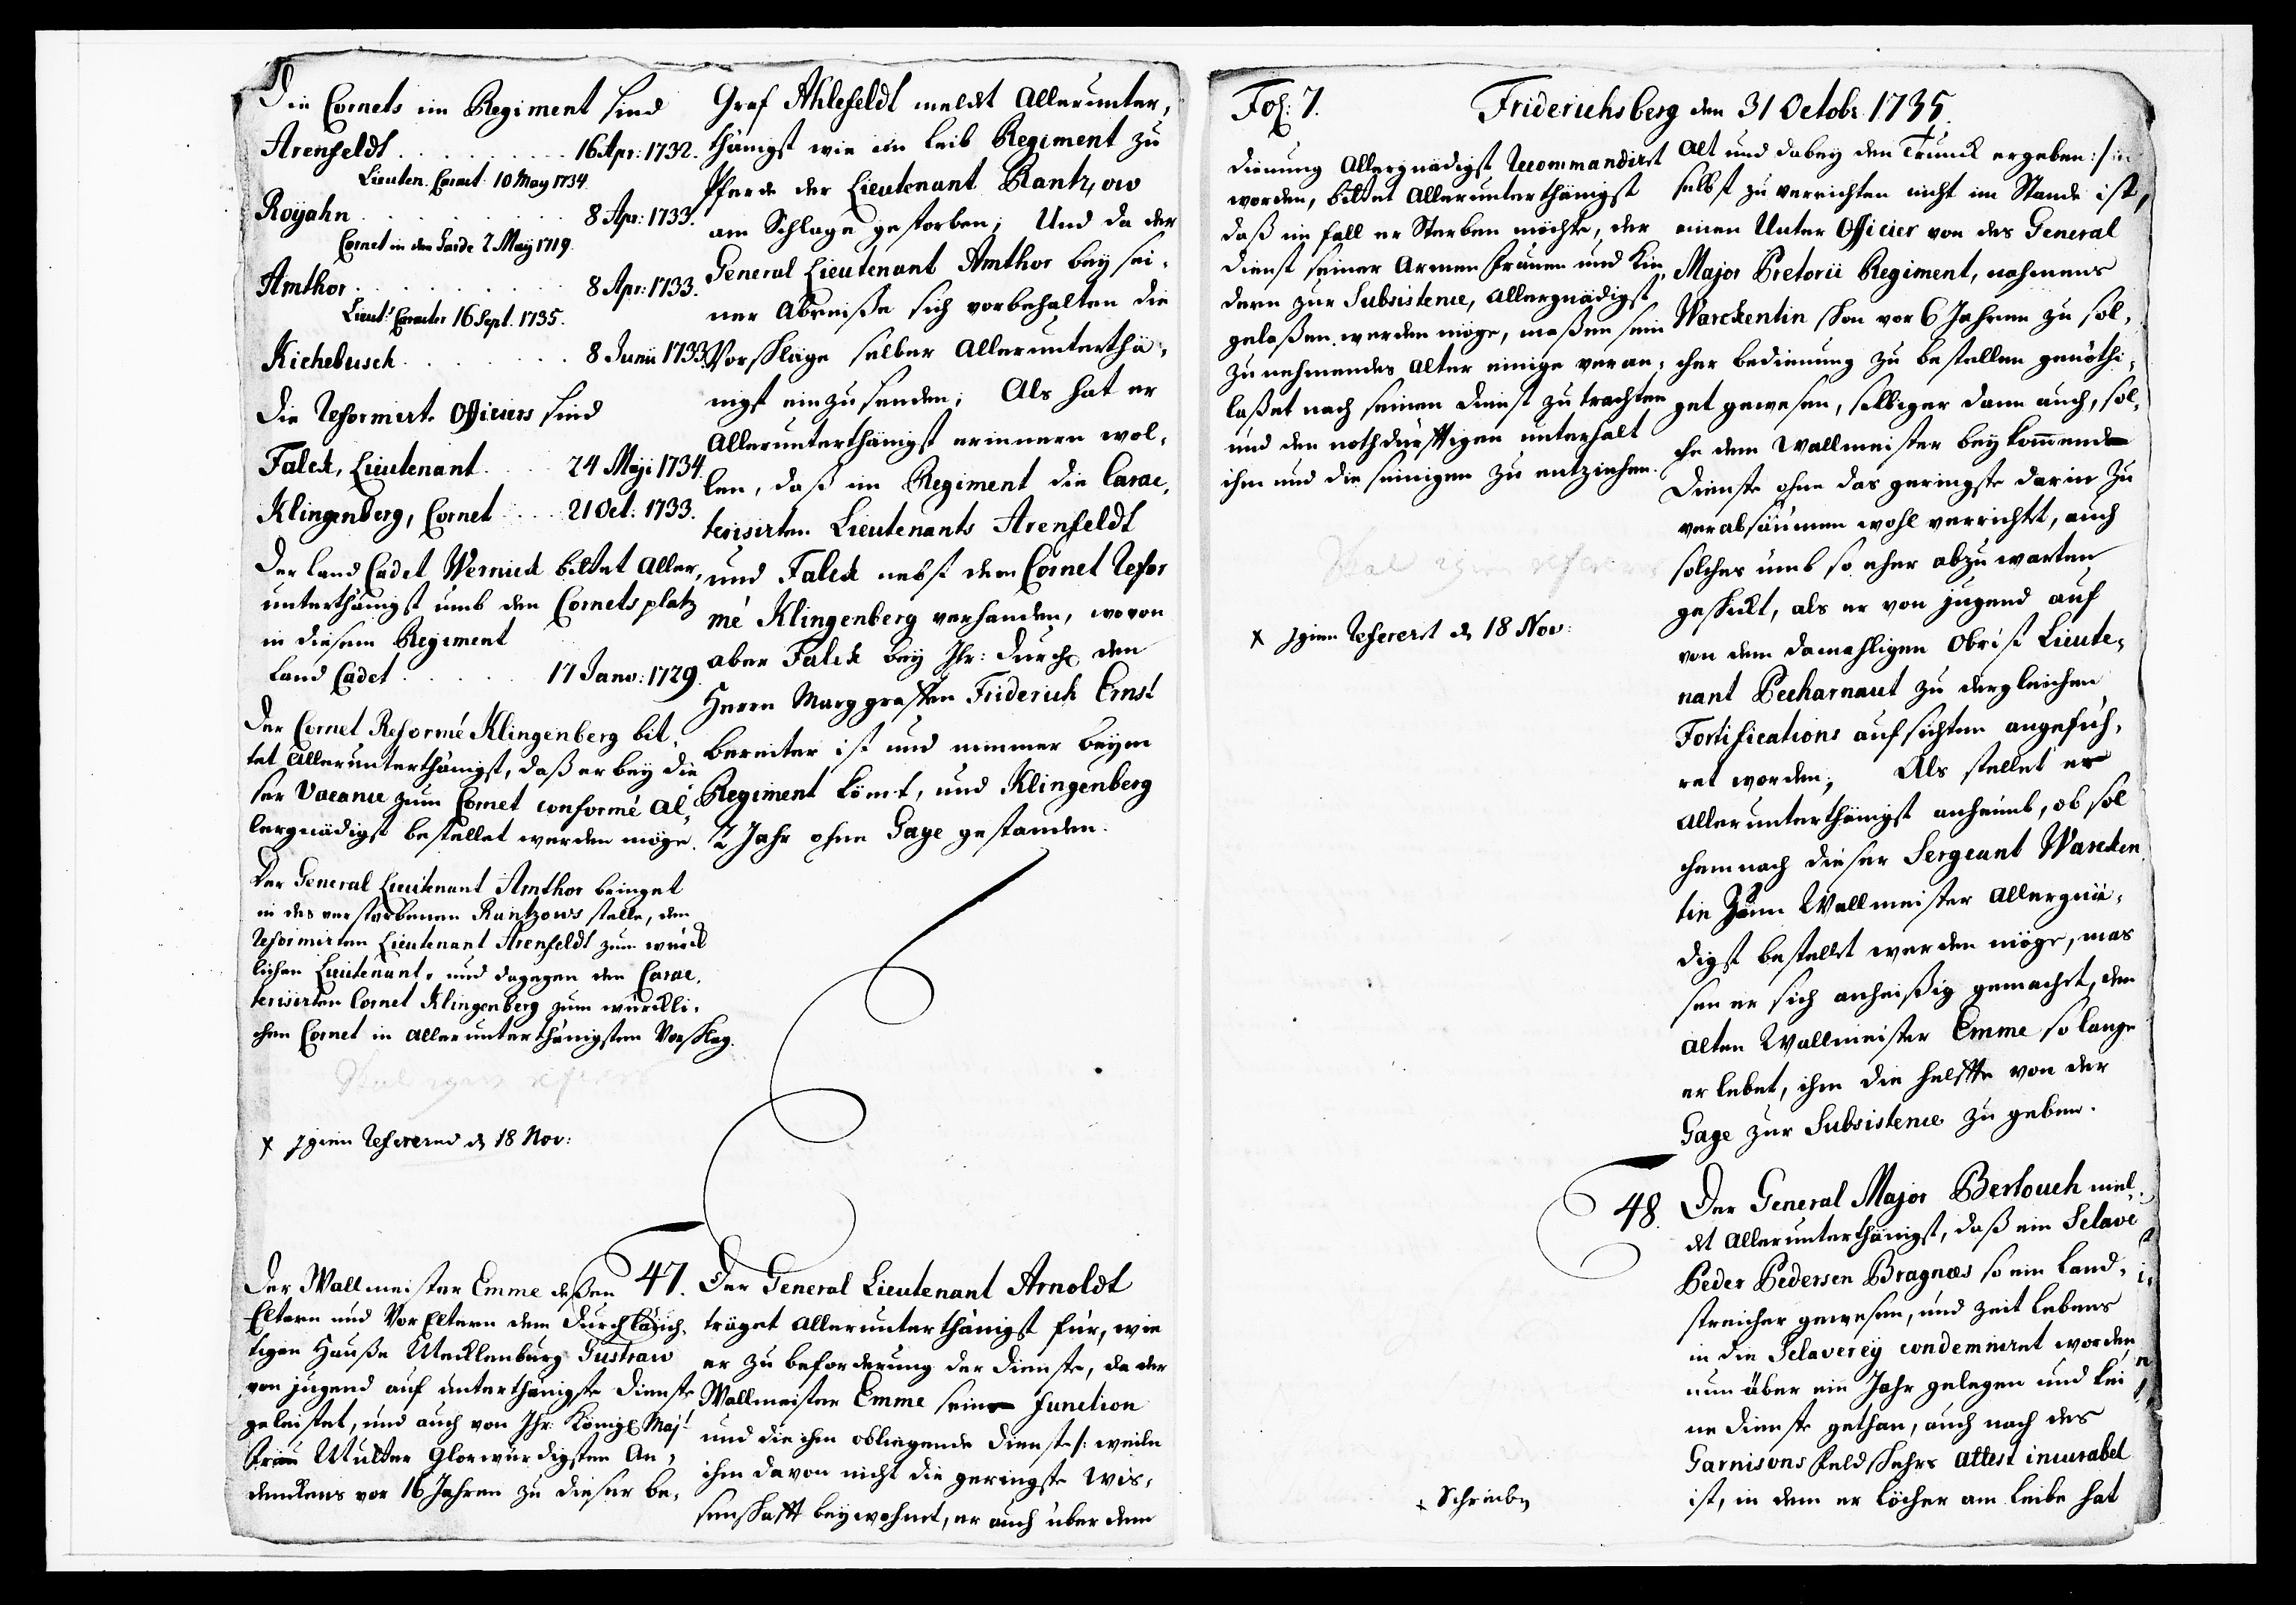 Die Cornets im Regiment sind
Arenfeldt . . . . . . . . . 16 Apr: 1732.
Lieuten. Caract. 10 May 1734.
Royahn . . . . . . . . . 8 Apr: 1733.
Cornet in der Garde 2 May 1719.
Amthor . . . . . . . . . 8 Apr: 1733.
Lieut: Caracter 16 Sept. 1735.
Kiehebusch . . . . . . 8 Junii 1733.
Die Reformirte Officiers sind
Falck, Lieutenant . . . . 24 Maji 1734.
Klingenberg, Cornet . . . . 21 Oct: 1733.
Der Land Cadet Wernick bittet Aller,
unterthänigst umb den Cornets platz
in diesem Regiment
Land Cadet . . . . . . 17 Janv: 1729.
Der Cornet Reformé Klingenberg bit,
tet Allerunterthänigst, daß er bey die
ser Vacance zum Cornet conformé Al,
lergnädigst bestellet werden möge.
Der General Lieutenant Amthor bringet
in des verstorbenen Rantzows stelle, den
Reformirten Lieutenant Arenfeldt zum würck
lichen Lieutenant, und dagegen den Carac,
terisirten Cornet Klingenberg zum würckli,
chen Cornet in Allerunterthänigsten Vorschlag.
x Igien Refererd d 18 Nov:
Der Wallmeister Emme deßen
Eltern und Vor Eltern dem Durchläuch,
tigen Hauße Mecklenburg Gustrow
von jugend auf unterthänigste Dienste
geleistet, und auch von Ihr: Königl Maj:
Frau Mutter Glorwürdigsten An,
denckens vor 16 Jahren zu dieser be,
Graf Ahlefeldt meldt Allerunter,
thänigst wie im Leib Regiment zu
Pferde der Lieutenant Rantzow
am Schlage gestorben; Und da der
General Lieutenant Amthor bey sei,
ner Abreiße sich vorbehalten die
Vorschläge selber Allerunterthä,
nigst einzusenden; Als hat er
Allerunterthänigst erinnern wol,
len, daß im Regiment die Carac,
terisirten Lieutenants Arenfeldt
und Falck nebst dem Cornet Refor
mé Klingenberg verhanden, wovon
aber Falck bey Ihr: Durchl den
Herrn Marggraffen Friderich Ernst
bereiter ist und nimmer beym
Regiment kömt, und Klingenberg
2 Jahr ohne Gage gestanden.
47. Der General Lieutenant Arnoldt
träget Allerunterthänigst für, wie
er zu beforderung der Dienste, da der
Wallmeister Emme seine Function
und die ihm obliegende Dienste /: weiln
ihm davon nicht die geringste wis,
senschafft beywohnet, er auch über dem
Fol: 7. Friderichsberg den 31 Octobr. 1735.
dienung Allergnädigst Recommandirt
worden, bittet Allerunterthänigst
daß im fall er Sterben möchte, der
Dienst seiner Armen Frauen und Kin,
dern zur Subsistence, Allergnädigst
gelaßen werden möge, maßen sein
zunehmendes Alter einige veran,
laßet nach seinen Dienst zu trachten
und den nothdürfftigen unterhalt
ihm und die seinigen zu entziehen.
x Igien Refererd d 18 Nov:
Alt und dabey den Trunck ergeben :/
selbst zu verrichten nicht im Stande ist,
einen Unter Officier von des General
Major Pretorii Regiment, nahmens
Warckentin schon vor 6 Jahren zu sol,
cher bedienung zu bestellen genöthi,
get gewesen, selbiger dann auch, sol,
che dem Wallmeister beykommende
Dienste ohne das geringste darin zu
verabsäumen wohl verrichtet, auch
solches umb so eher abzuwarten
geschickt, als er von jugend auf
von dem damahligen Obrist Lieute,
nant Pecharnaut zu dergleichen
Fortifications aufsichten angefüh,
ret worden; Als stellet er
Allerunterthänigst anheimb, ob sol
chemnach dieser Sergeant Warcken
tin zum Wallmeister Allergnä,
digst bestellt werden möge, mas
sen er sich anheißig gemacht, dem
alten Wallmeister Emme so lange
er lebet, ihm die helffte von der
Gage zur Subsistence zu geben.
48. Der General Major Bertouch mel,
det Allerunterthänigst, daß ein Sclave
Peder Pedersen Bragnæs so ein Land,
streicher gewesen, und zeit lebens
in die Sclaverey condemniret worden
nun über ein Jahr gelegen und kei
ne Dienste gethan, auch nach des
Garnisons Feldschers Attest incurabel
ist, in dem er löcher am Leibe hat
x Schreiben